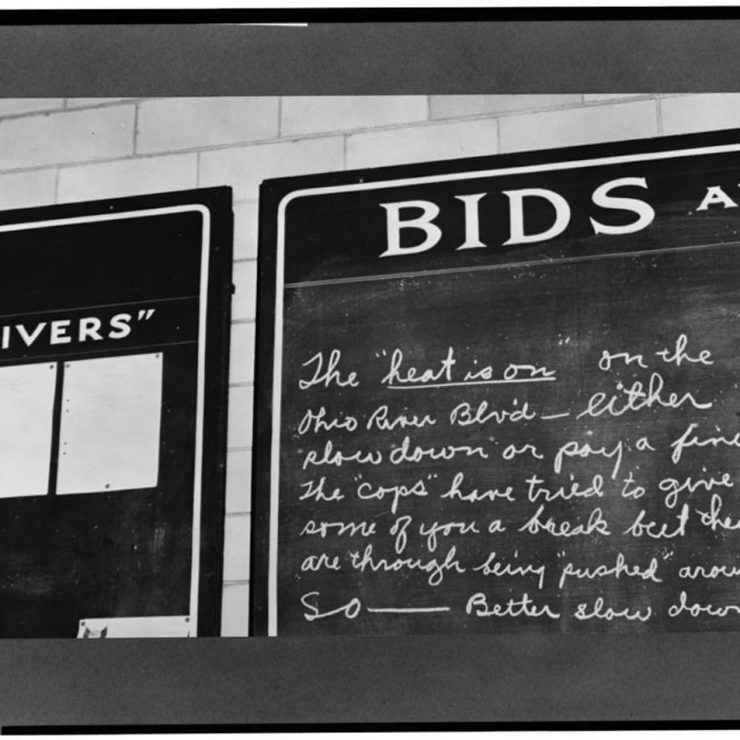 IVERS”
BIDS A
The "heat is on" on the
Ohio River Blvd — either
slow down or pay a fine
The "cops" have tried to give
some of you a break but the
are through being "pushed" arou
So —— Better slow down